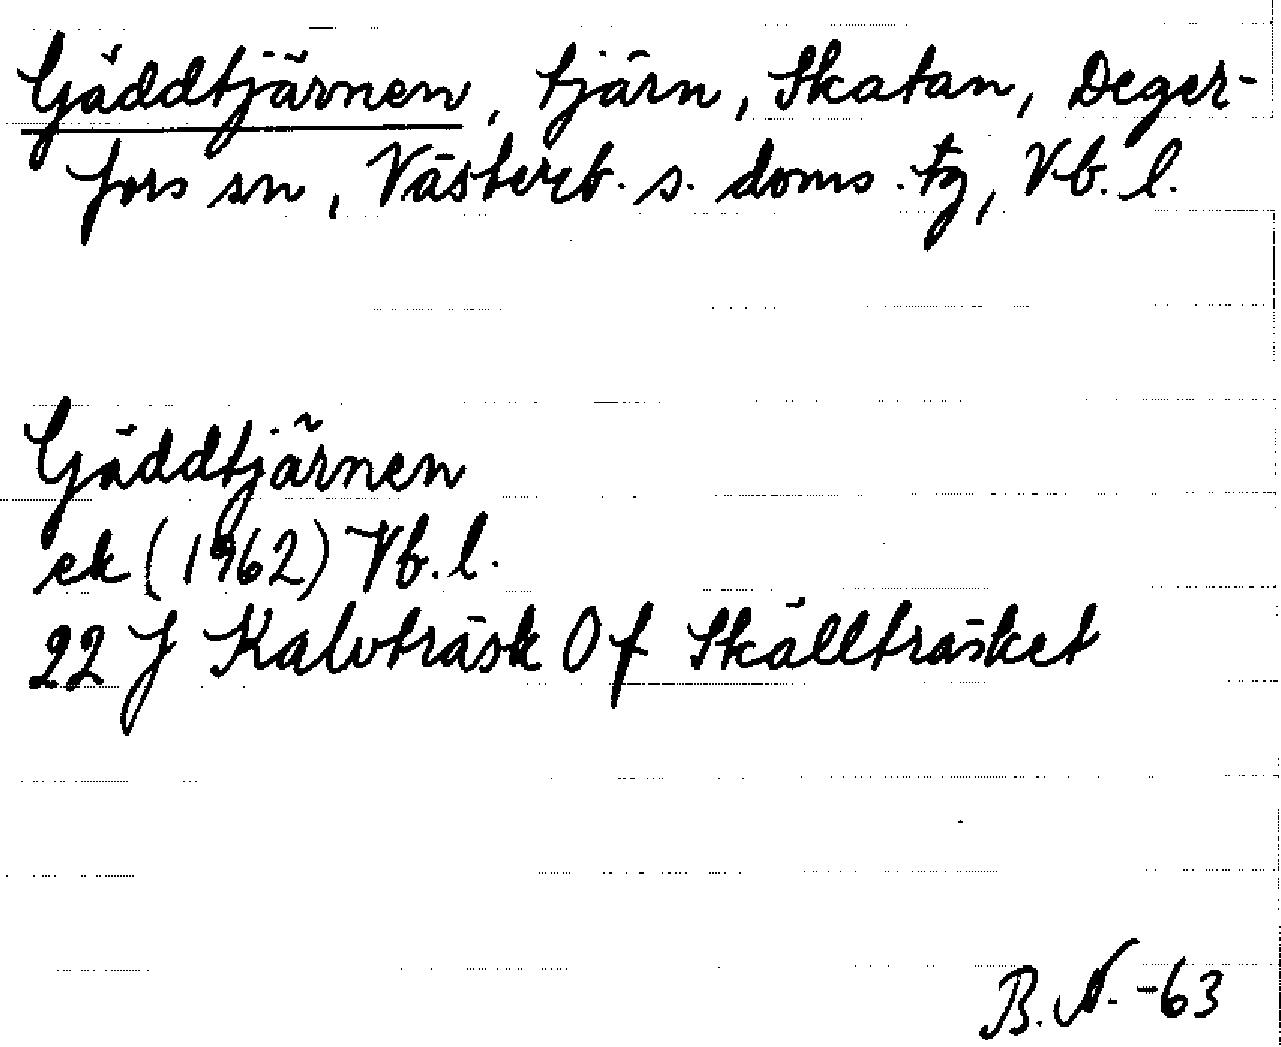 Gäddtjärnen, tjärn, Skatan, Deger-
fors sn, Västerb. s. doms. tg, Vb. l.
Gäddtjärnen
ek (1962) Vb. l.
22 J Kalvträsk 0 f Skällträsket
B. N. -63